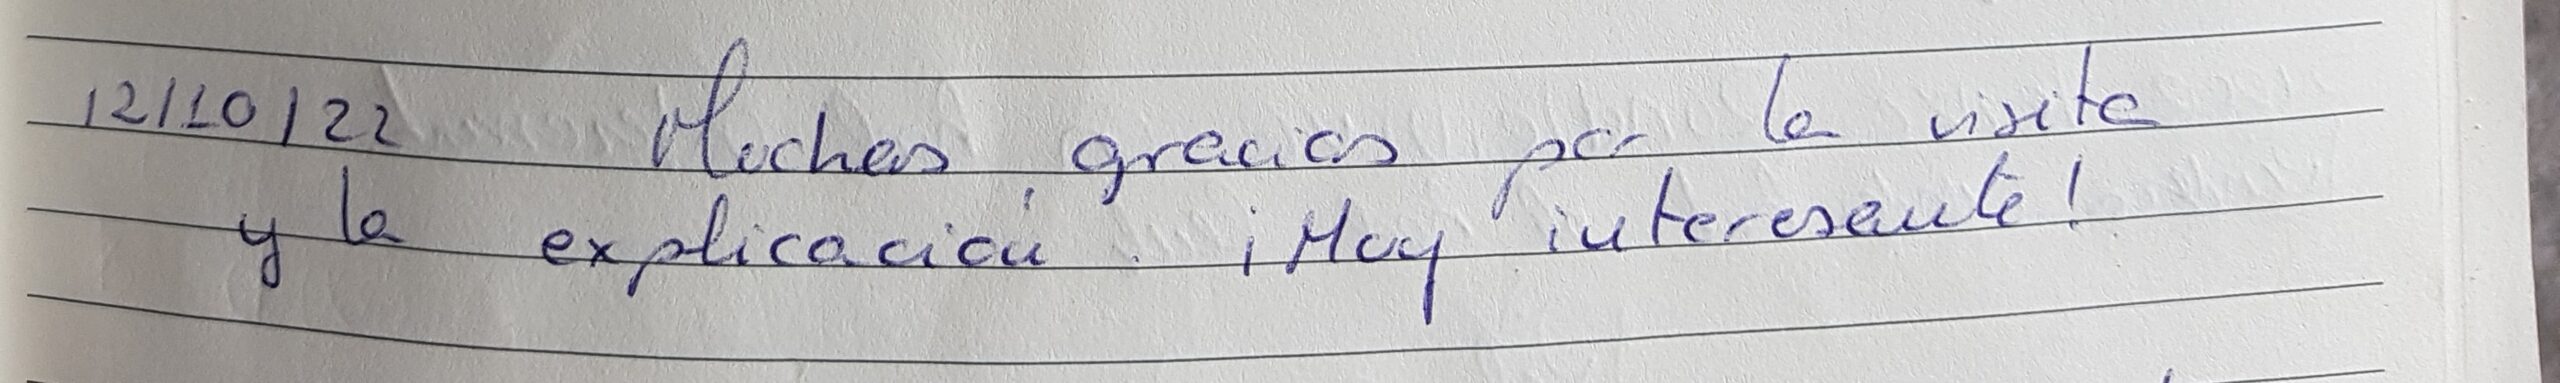 12/10/22 Muchas gracias por la visita
y la explicación. ¡Muy interesante!